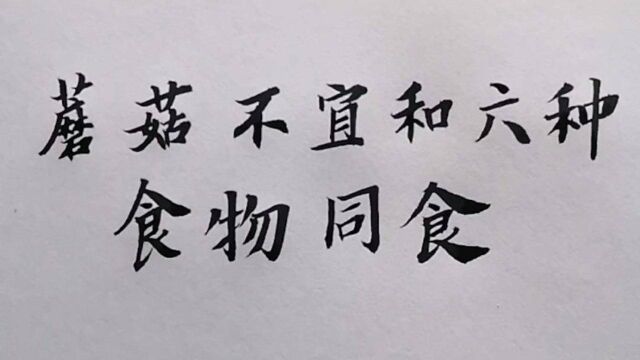 蘑菇不宜和六种
食物同食